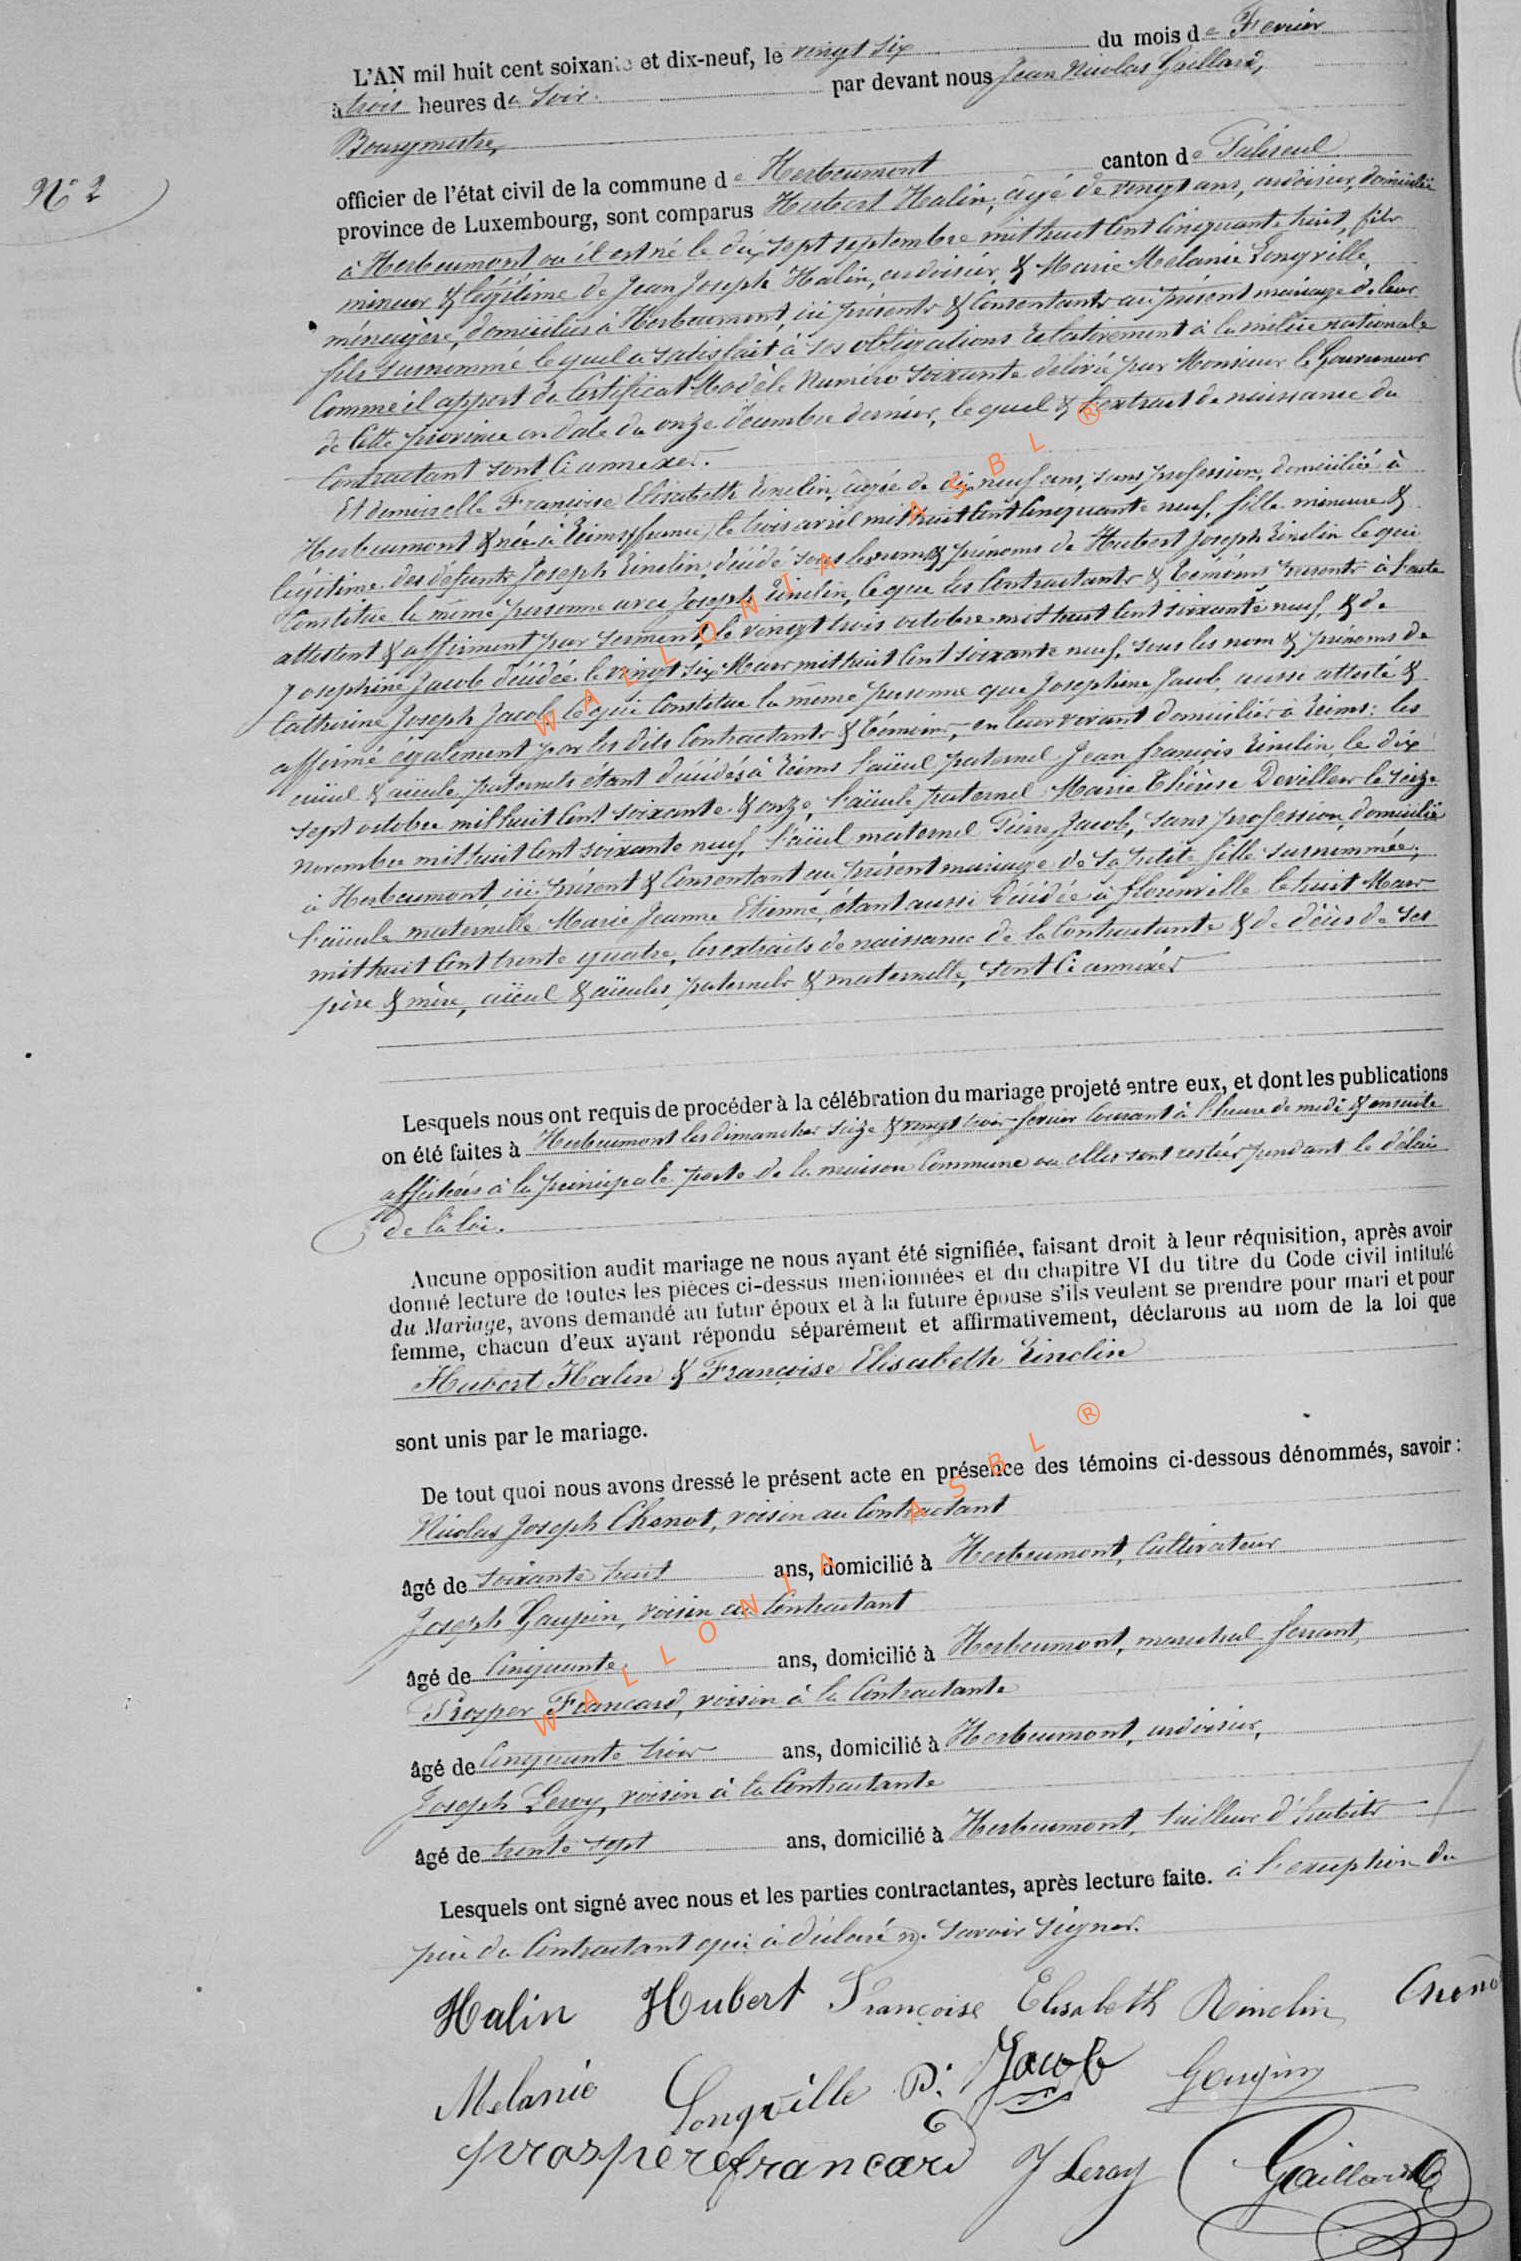 L'AN mil huit cent soixante et dix-neuf, le vingt six du mois de Fevrier
à trois heures du soir. par devant nous Jean Nicolas Gaillard,
Bourgmestre,
N° 2
officier de l'état civil de la commune de Herbeumont canton de Paliseul
province de Luxembourg, sont comparus Hubert Halin, âgé de vingt ans, ardoisier, domicilié
à Herbeumont où il est né le dix sept septembre mil huit cent cinquante huit, fils
mineur & légitime de Jean Joseph Halin, ardoisier, & Marie Mélanie Longville,
ménagère, domiciliés à Herbeumont, ici présents & consentants au présent mariage de leur
fils susnommé lequel a satisfait à ses obligations relativement à la milice nationale
comme il appert du certificat Modèle Numéro soixante délivré par Monsieur le Gouverneur
de cette province en date du onze décembre dernier, lequel & l'extrait de naissance du
contractant sont ci annexés.
Et demoiselle Françoise Elisabeth Rinclin, âgée de dix neuf ans, sans profession, domiciliée à
Herbeumont & née à Reims (france) le trois avril mil huit cent cinquante neuf, fille mineure &
légitime des défunts Joseph Rinclin, décédé sous les nom & prénoms de Hubert Joseph Rinclin ce qui
constitue la même personne avec Joseph Rinclin, ce que les contractants & témoins présents à l'acte
attestent & affirment par serment, le vingt trois octobre mil huit cent soixante neuf, & de
Josephine Jacob décédée le vingt six Mars mil huit cent soixante neuf, sous les nom & prénoms de
Catherine Joseph Jacob ce qui constitue la même personne que Josephine Jacob, aussi attesté &
affirmé également par les dits contractants & témoins, en leur vivant domiciliés à Reims: les
aïeul & aïeule paternels étant décédés à Reims l'aïeul paternel Jean françois Rinclin, le dix
sept octobre mil huit cent soixante & onze, l'aïeule paternel Marie Thérèse Devillers le seize
novembre mil huit cent soixante neuf, l'aïeul maternel Pierre Jacob, sans profession, domicilié
à Herbeumont, ici présent & consentant au présent mariage de sa petite fille susnommée,
l'aïeule maternelle Marie Jeanne Etienne, étant aussi décédée à florenville le huit Mars
mil huit cent trente quatre, les extraits de naissance de la contractante & de décès de ses
père & mère, aïeul & aïeules paternels & maternelle, sont ci annexés
Lesquels nous ont requis de procéder à la célébration du mariage projeté entre eux, et dont les publications
on été faites à Herbeumont les dimanches seize & vingt trois fevrier courant à l'heure de midi & ensuite
affichées à la principale porte de la maison commune où elles sont restées pendant le délai
de la loi.
Aucune opposition audit mariage ne nous ayant été signifiée, faisant droit à leur réquisition, après avoir
donné lecture de toutes les pièces ci-dessus mentionnées et du chapitre VI du titre du Code civil intitulé
du Mariage, avons demandé au futur époux et à la future épouse s'ils veulent se prendre pour mari et pour
femme, chacun d'eux ayant répondu séparément et affirmativement, déclarons au nom de la loi que
Hubert Halin & Françoise Elisabeth Rinclin
sont unis par le mariage.
De tout quoi nous avons dressé le présent acte en présence des témoins ci-dessous dénommés, savoir :
Nicolas Joseph Chenot, voisin au contractant
âgé de soixante huit ans, domicilié à Herbeumont, cultivateur
Joseph Goupin, voisin au contractant
âgé de cinquante ans, domicilié à Herbeumont, marechal ferrant,
Prosper Francard, voisin à la contractante
âgé de cinquante trois ans, domicilié à Herbeumont, ardoisier,
Joseph Leroy, voisin à la contractante
âgé de trente sept ans, domicilié à Herbeumont, tailleur d'habits
Lesquels ont signé avec nous et les parties contractantes, après lecture faite. à l'exception du
père du contractant qui a déclaré ne savoir signer.
Halin Hubert Françoise Elisabeth Rinclin Cheno
Melanie Longville P. Jacob Goupin
prospere francard J Leroy Gaillard
WALLONIA ASBL ®
WALLONIA ASBL ®